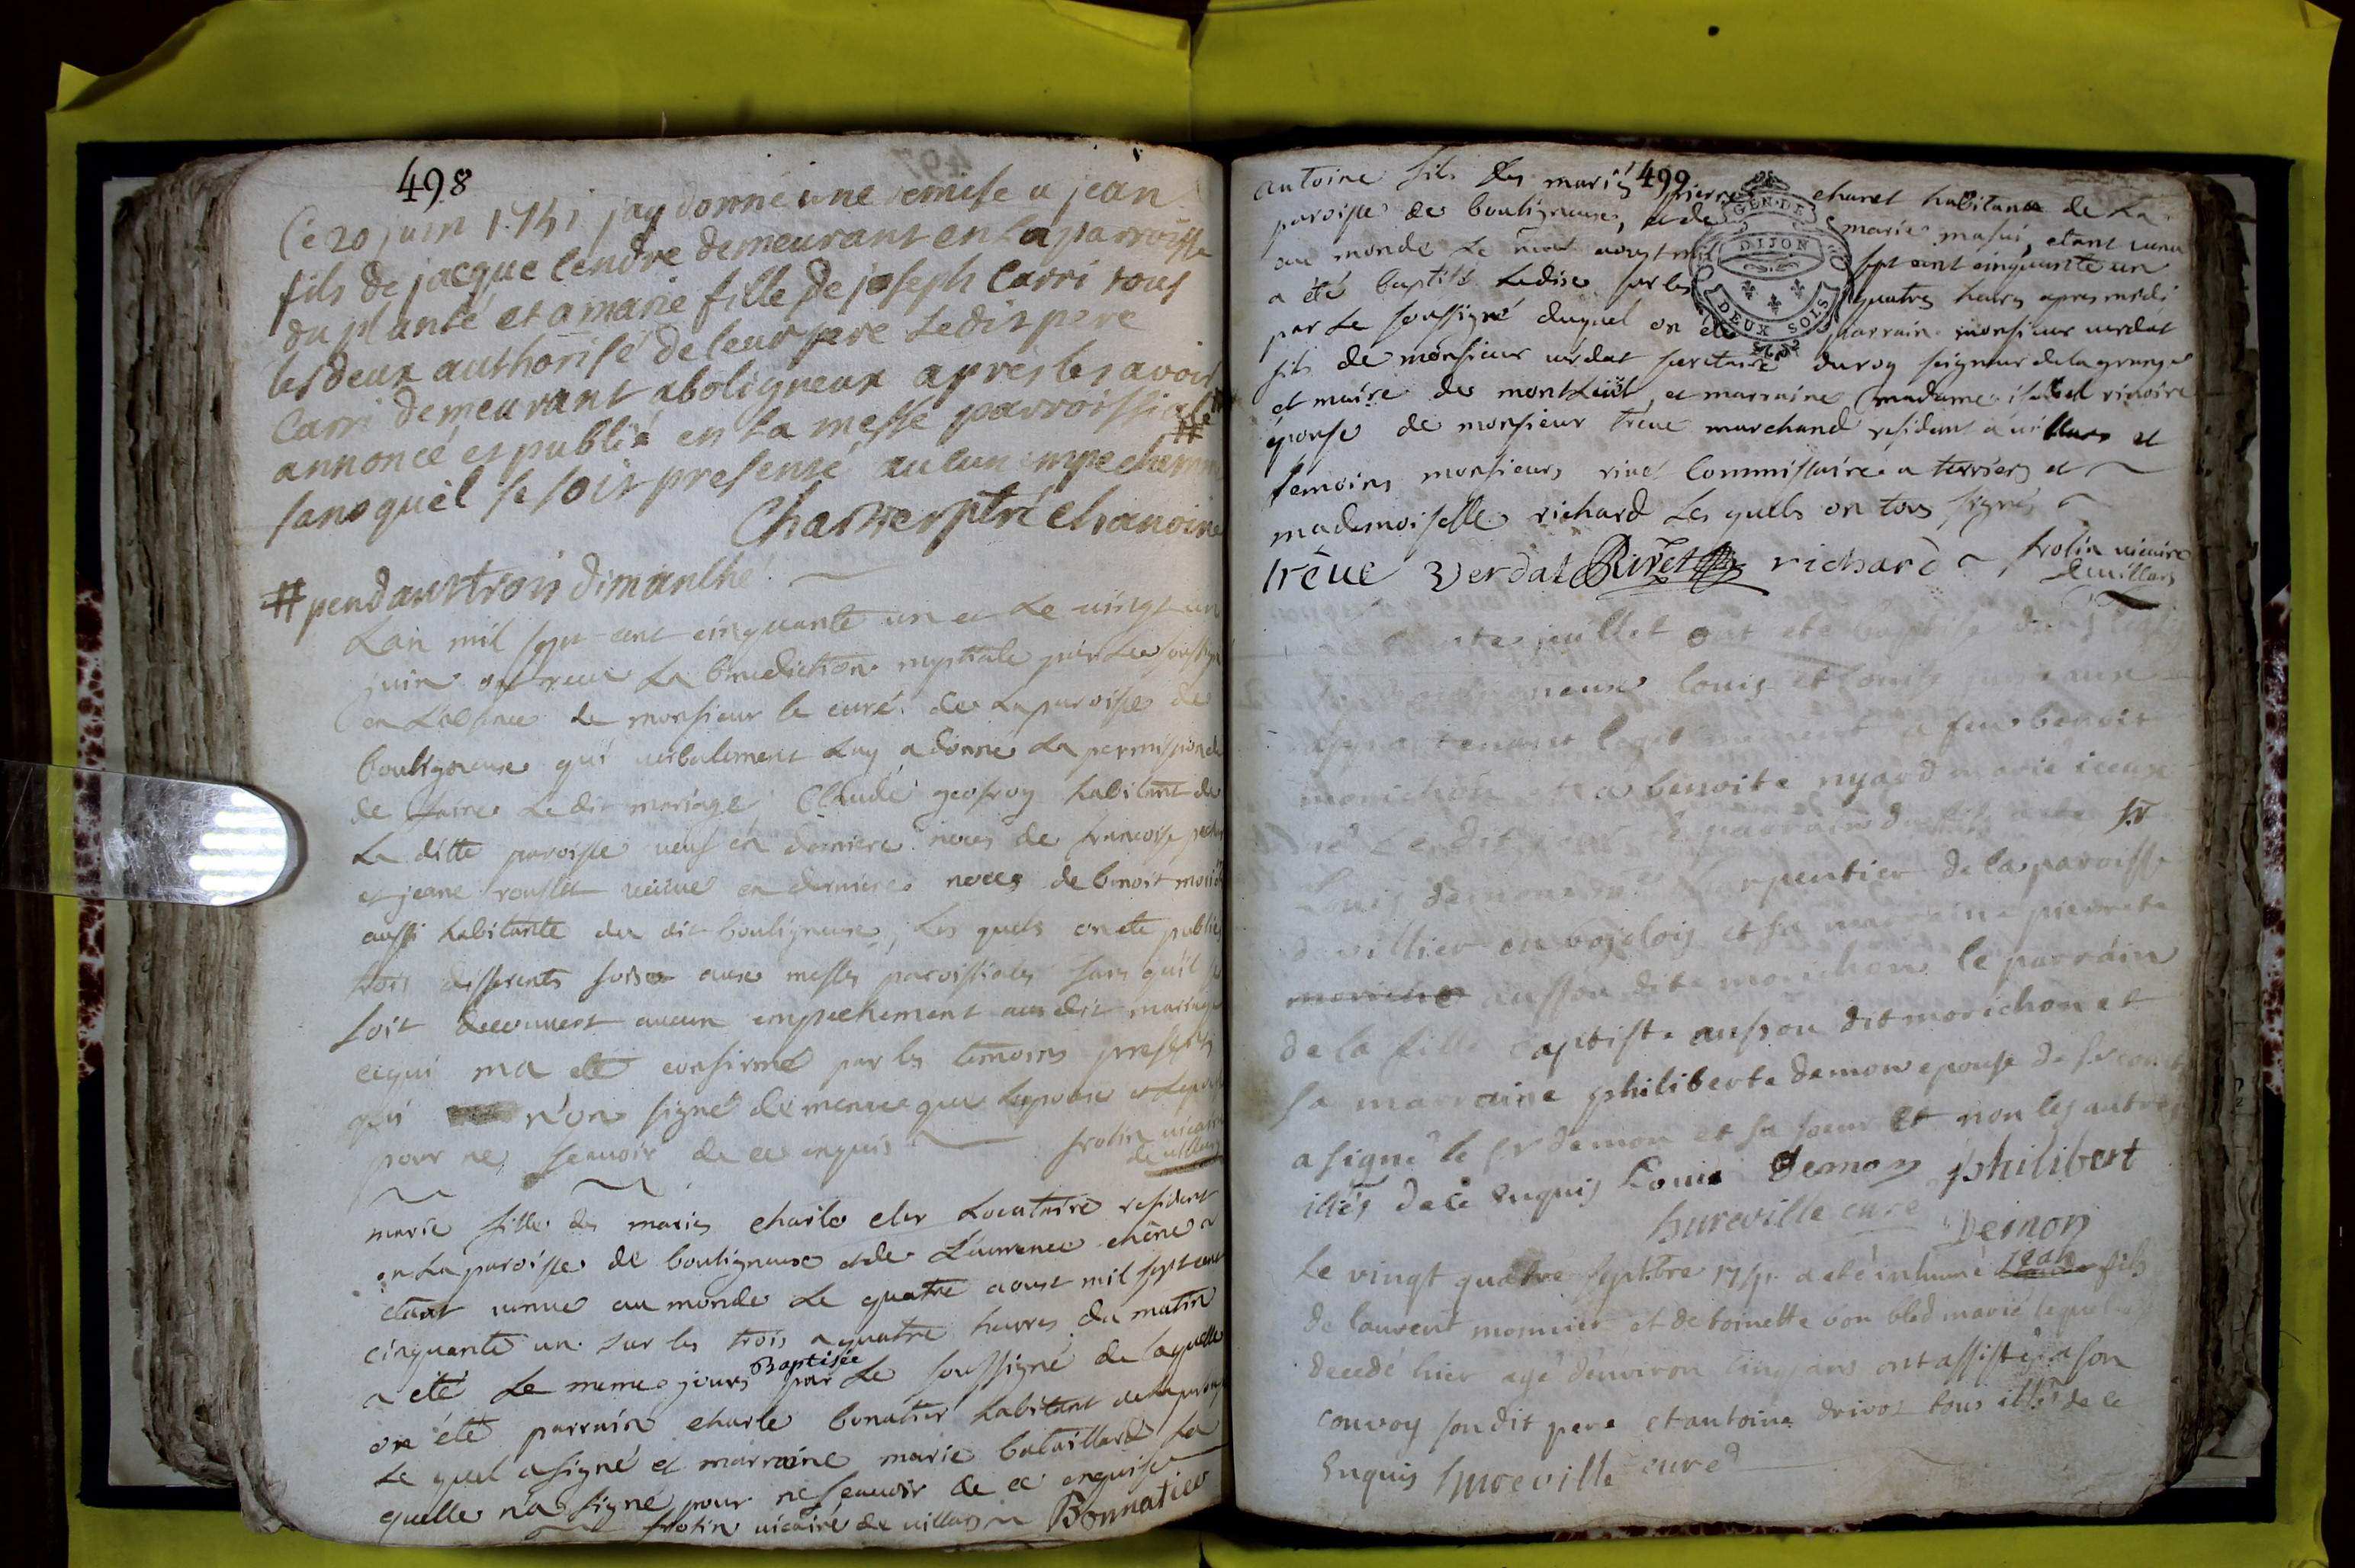 498
Ce 20 juin 1751 jay donné une remise a jean
fils de jacque lendre demeurant en la parroisse
du planté et a marie fille de joseph Carri tous
les deux authorisé de leur pere ledit pere
Carri demeurant a boligneux apres les avoir
annoncé et publié en la messe parroissiale #
sans quèl se soit presenté aucun empechem
Charvet ptre chanoine
# pendant trois dimanche
Lan mil sept cent cinquante un et le vingt un
juin ont receu la benediction nuptiale par le soussigné
en l'absence de monsieur le curé de la paroisse de
bouligneux qui verbalement luy a donné la permission de
de faire ledit mariage, Claude geofroy habitant de
la ditte paroisse veuf en derniere noces de francoise
et jeane veuve en derniere noces de benoit
aussi habitante du dit bouligneux, les quels on ete publiés
trois differents fois aux messes paroissiales sans qu'il se
soit decouvert aucun empechement audit mariage
cequi ma eté confirmé par les temoins presents
qui n'on signé de meme que lepouse et lepoux
pour ne scavoir de ce enquis
frotin vicaire
de villars
marie fille des mariés charle locataire resident
en la paroisse de bouligneux et de Laurence chêne
etant venue au monde le quatre aoust mil sept cent
cinquante un sur les trois a quatre heures du matin
a été le meme jours Baptisée par le soussigné de laquelle
on été parrain charle bonatier habitant de la paroisse
le quel a signé et marraine marie bataillard la
quelle n'a signé pour ne scavoir de ce enquise
frotin vicaire de villars Bonnatier
499
antoine fils des mariés pierre charet habitant de la
paroisse de bouligneux, et de marie, etant venu
au monde le aoust mil sept cent cinquante un
a été baptisé ledit sur les quatres heures apres midi
par le soussigné duquel on été parrain monsieur verdat
fils de monsieur verdat secretaire du roy seigneur de la grange
et maire de montluël et marraine madame isabel rivoire
épouse de monsieur trêue marchand resident a villars et
temoins monsieur rivet Commissaire a terriers et
mademoiselle richard les quels on tous signés
trêue Verdat Rivet richard frotin vicaire
de villars
GEN. DE DIJON
DEUX SOLS
juillet ont eté baptisé dans leglise
de bouligneux louis et louise jumeaux
appartenant legitimement a feu benoit
morichon et a benoite nyard marié iceux
Louis demon charpentier de la paroisse
de villier en bojolois et sa marraine pierrete
aussou dite morichon le parrain
de la fille baptiste aussou dit morichon et
sa marraine philiberte demon epouse de
a signé le sr demon et sa soeur et non les autres
illés de ce enquis Louis Demon philibert
hureville curé Demon
Le vingt quatre septbre 1751 a eté inhumé jean fils
de laurent monnier et de toinette bon bled marié lequel
decedé hier agé d'environ cinq ans ont assisté a son
convoy son dit pere et antoine drivot tous illés de ce
Enquis hureville curé